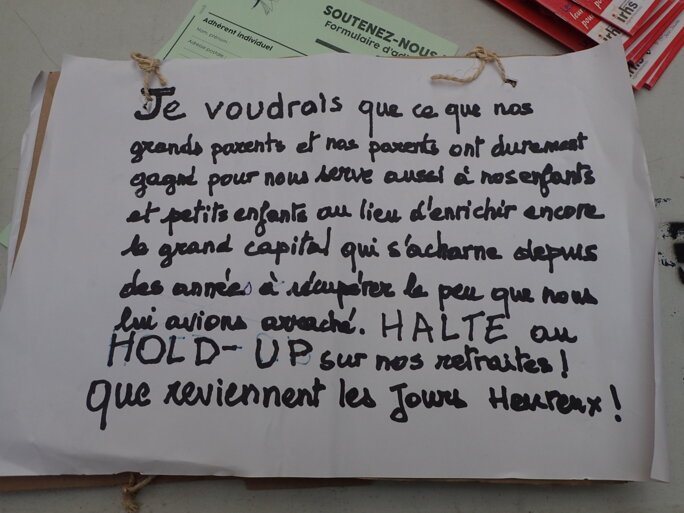 SOUTENEZ-NOUS
Formulaire d'ad
Adhérent individuel
Nom, prénom
irhs
irhs
Je voudrais que ce que nos
grands parents et nos parents ont durement
gagné pour nous serve aussi à nos enfants
et petits enfants au lieu d'enrichir encore
le grand capital qui s'acharne depuis
des années à récupérer le peu que nous
lui avions arraché. HALTE au
HOLD-UP sur nos retraites !
Que reviennent les Jours Heureux !